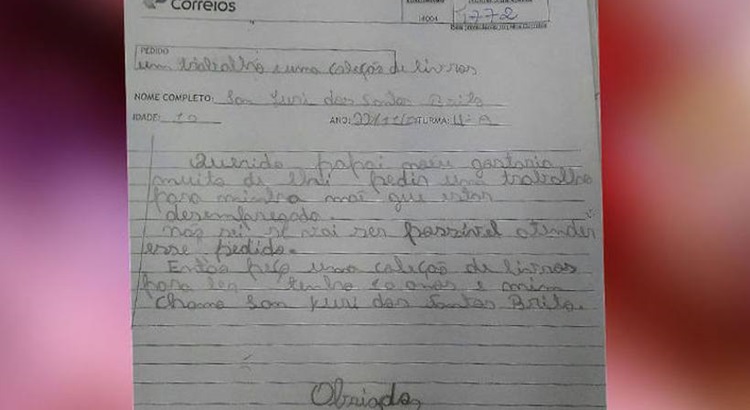 Correios
14004
1772
PEDIDO
um trabalho e uma coleção de livros
NOME COMPLETO: San Yuri dos Santos Brito
IDADE: 10 ANO: TURMA: 4º A
Querido papai noeu gostaria
muito de lhri pedir um trabalho
para minhra mãe que estar
desempregada.
não sei se vai ser possível atender
esse pedido.
Então peço uma coleção de livros
para ler tenho 10 anos e mim
chamo San Yuri dos Santos Brito.
Obrigado